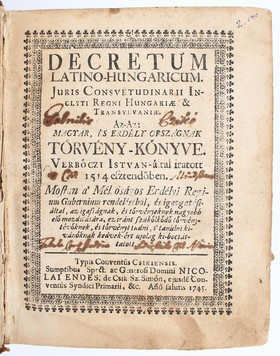 DECRETUM
LATINO-HUNGARICUM.
JURIS CONSVETUDINARII IN-
CLYTI REGNI HUNGARIÆ &
TRANSYLVANIÆ
AZ-AZ:
MAGYAR, ÉS ERDÉLY ORSZÁGNAK
TÖRVÉNY-KÖNYVE.
VERBÖCZI ISTVAN-által iratott
1514 esztendőben.
Mostan a' Mél'oságos Erdélyi Regi-
um Gubernium
által, az igaszágnak, és törvényeknek nagyobb
tévőknek, és törvényt tudni, s' tanúlni ki-
vánóknak kedvek-ért ujolag ki-bocsát-
tatott.
TYPIS CONVENTUS CSIKIENSIS.
Sumptibus Spect. ac Generosi Domini NICO-
LAI ENDES, de Csik Sz. Simon, ejusdē Con-
ventûs Syndici Primarii, &c. Año salutis 1745.